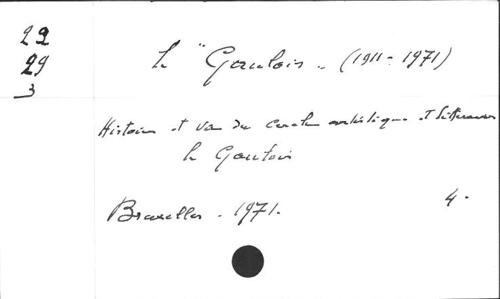 22
29
3
Le "Gaulois" (1911-1971)
Histoire et vie du cercle artistique et littéraire
le Gaulois
Bruxelles - 1971.
4.